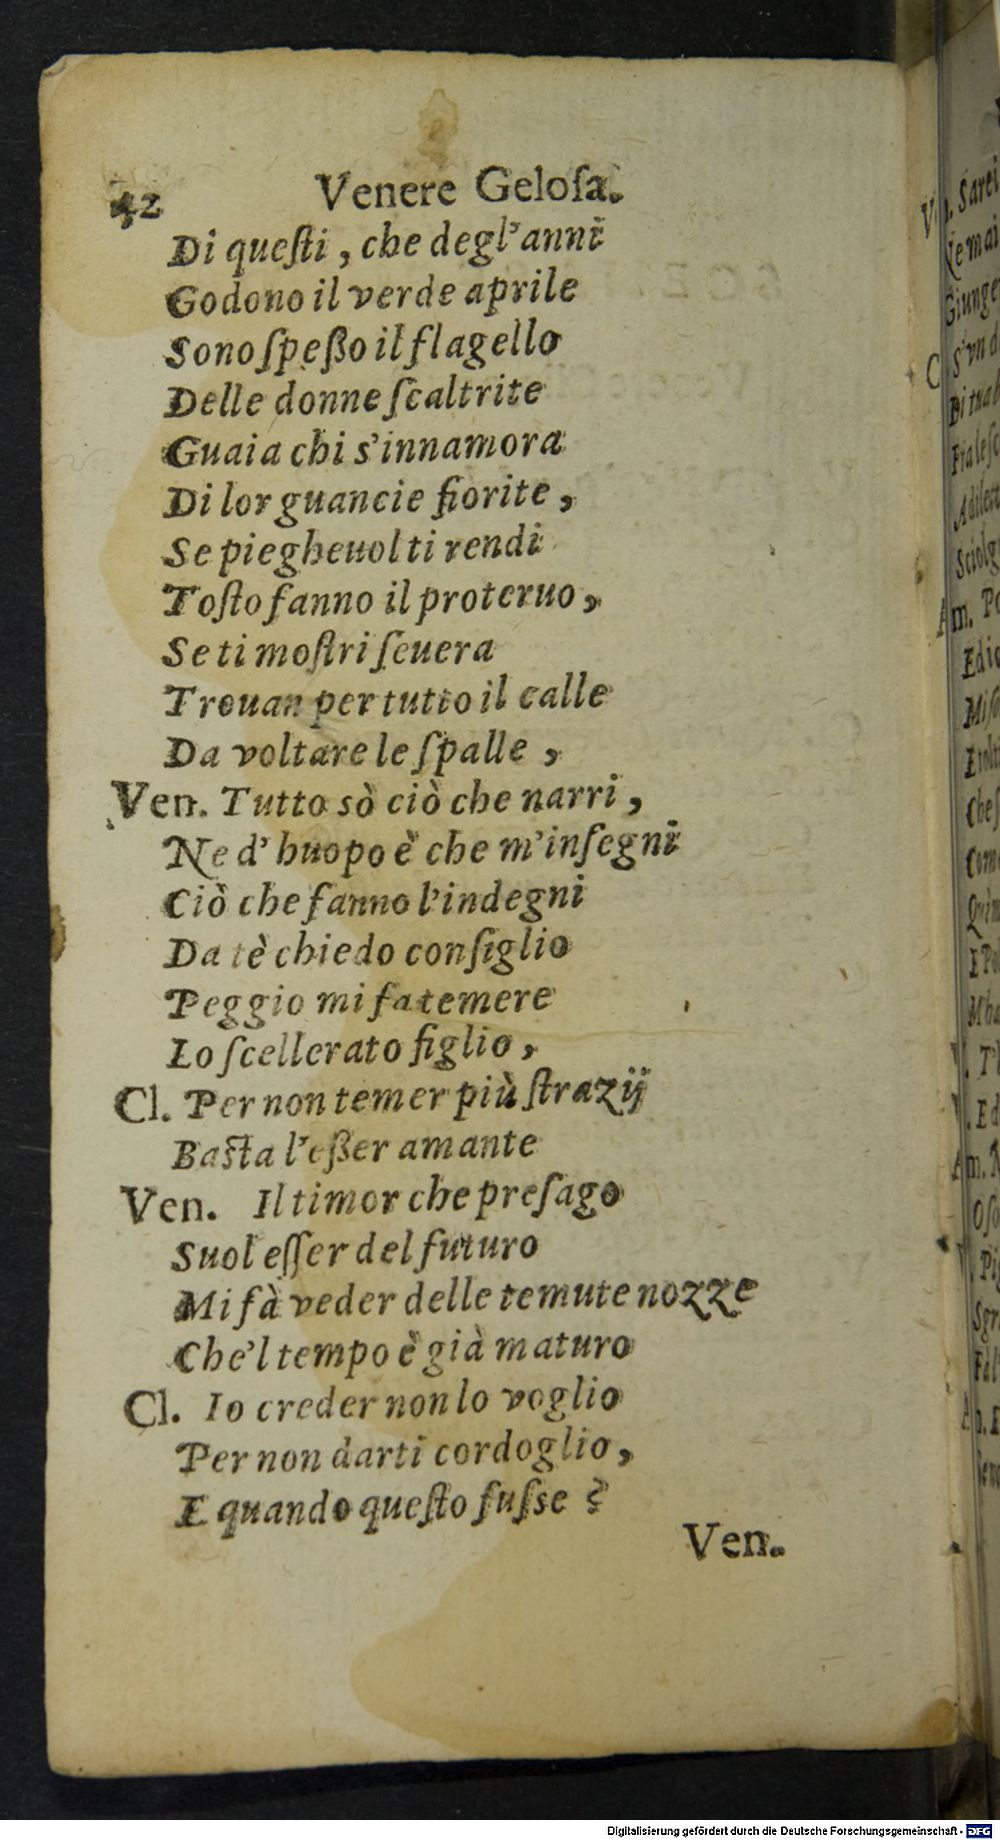 42 Venere Geloſa.
Di queſti, che degl'anni
Godono il verde aprile
Sono ſpeßo il flagello
Delle donne ſcaltrite
Guai a chi s'innamora
Di lor guancie fiorite,
Se piegheuol ti rendi
Toſto fanno il proteruo,
Se ti moſtri ſeuera
Trouan per tutto il calle
Da voltare le ſpalle,
Ven. Tutto sò ciò che narri,
Ne d'huopo è che m'inſegni
Ciò che fanno l'indegni
Da tè chiedo conſiglio
Peggio mi fa temere
Lo ſcellerato figlio,
Cl. Per non temer più ſtrazij
Baſta l'eßer amante
Ven. Il timor che preſago
Suol eſſer del futuro
Mi fà veder delle temute nozze
Che'l tempo è già maturo
Cl. Io creder non lo voglio
Per non darti cordoglio,
E quando queſto fuſse?
Ven.
Digitalisierung gefördert durch die Deutsche Forschungsgemeinschaft - DFG